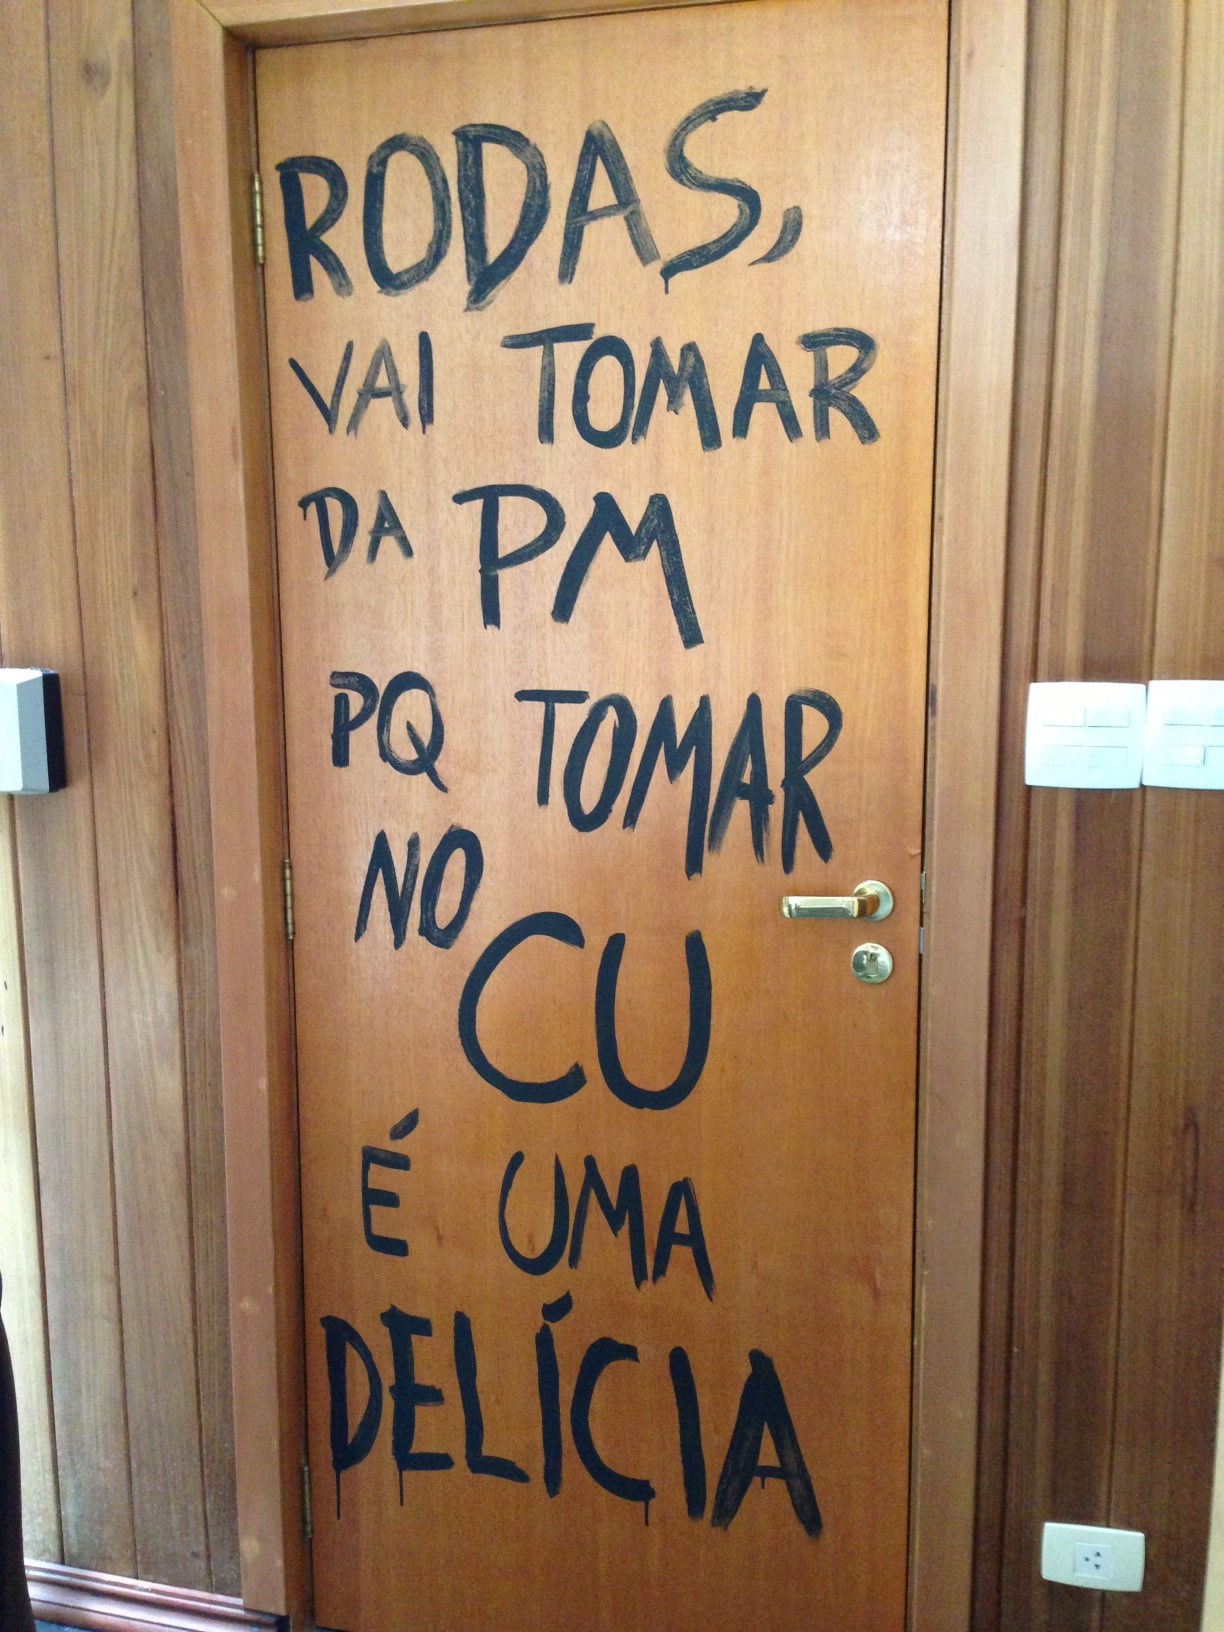 RODAS,
VAI TOMAR
DA PM
PQ TOMAR
NO CU
É UMA
DELÍCIA